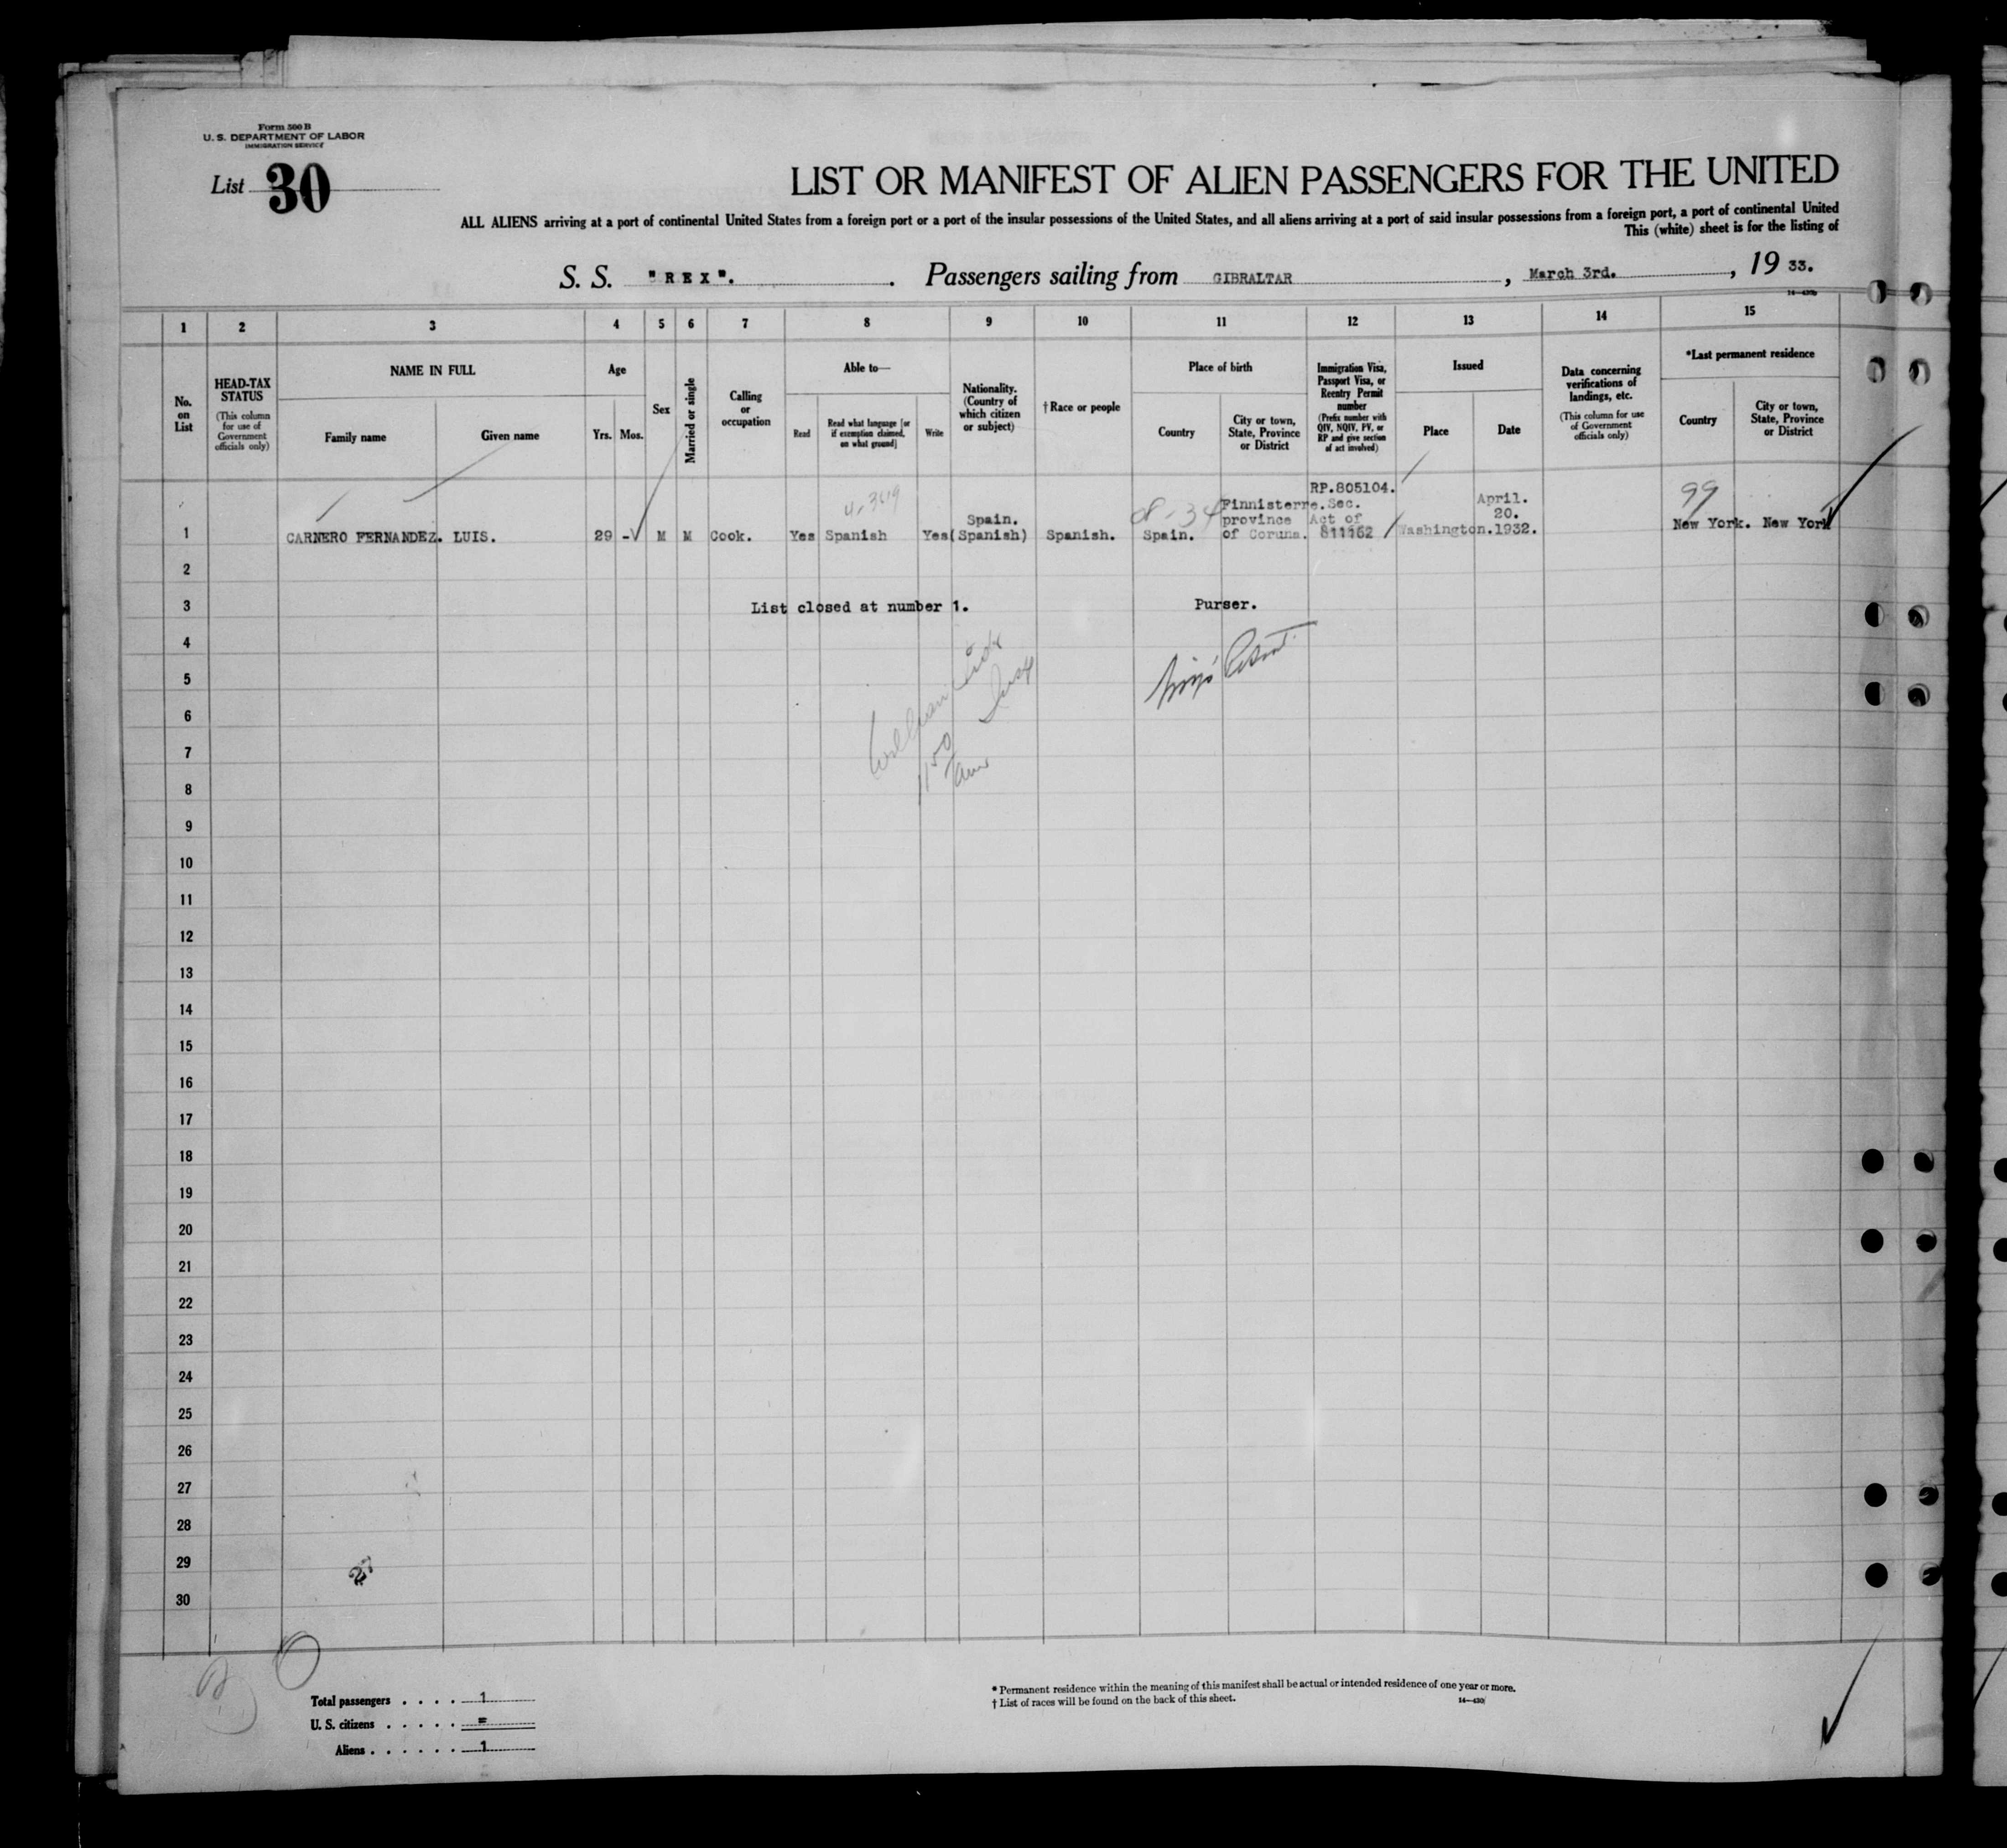 Form 500 B
U. S. DEPARTMENT OF LABOR
IMMIGRATION SERVICE
List 30
LIST OR MANIFEST OF ALIEN PASSENGERS FOR THE UNITED
ALL ALIENS arriving at a port of continental United States from a foreign port or a port of the insular possessions of the United States, and all aliens arriving at a port of said insular possessions from a foreign port, a port of continental United
This (white) sheet is for the listing of
S. S. "REX". Passengers sailing from GIBRALTAR, March 3rd., 19 33.
1 2 3 4 5 6 7 8 9 10 11 12 13 14 15
No. on List
HEAD-TAX STATUS
(This column for use of Government officials only)
NAME IN FULL
Family name
Given name
Age
Yrs.
Mos.
Sex
Married or single
Calling or occupation
Able to—
Read
Read what language [or if exemption claimed, on what ground]
Write
Nationality. (Country of which citizen or subject)
†Race or people
Place of birth
Country
City or town, State, Province or District
Immigration Visa, Passport Visa, or Reentry Permit number
(Prefix number with QIV, NQIV, PV, or RP and give section of act involved)
Issued
Place
Date
Data concerning verifications of landings, etc.
(This column for use of Government officials only)
*Last permanent residence
Country
City or town, State, Province or District
1 CARNERO FERNANDEZ. LUIS. 29 - M M Cook. Yes Spanish Yes Spain. (Spanish) Spanish. Spain. Finnisterre. province of Coruna. RP.805104. Sec. Act of Washington. April. 20. 1932. 99 New York. New York
2
3 List closed at number 1. Purser.
4
5
6
7
8
9
10
11
12
13
14
15
16
17
18
19
20
21
22
23
24
25
26
27
28
29
30
Total passengers . . . . 1
U. S. citizens . . . . . =
Aliens . . . . . . 1
* Permanent residence within the meaning of this manifest shall be actual or intended residence of one year or more.
† List of races will be found on the back of this sheet.